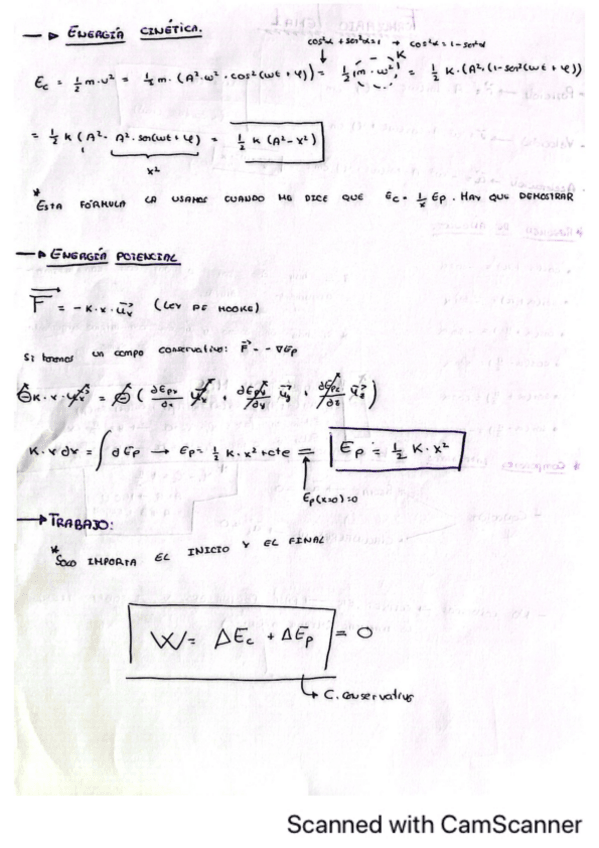 → ENERGÍA CINÉTICA.
cos²α + sen²α=1 → cos²α = 1-sen²α
Ec = 1/2 m·v² = 1/2 m·(A²·ω²·cos²(ωt+φ)) = 1/2 (m·ω²) K = 1/2 K·(A²·(1-sen²(ωt+φ))
= 1/2 K (A² - A²·sen(ωt+φ) = 1/2 K (A²-x²)
x²
* ESTA FÓRMULA LA USAMOS CUANDO NO DICE QUE Ec = 1/x Ep. HAY QUE DEMOSTRAR
→ ENERGÍA POTENCIAL
F = -K·x·ux (LEY DE HOOKE)
Si tenemos un campo conservativo: F = -∇Ep
-K·x·ux = -(∂Epx/∂x ux + ∂Epy/∂y uy + ∂Epz/∂z uz)
K·x dx = ∫dEp → Ep = 1/2 K·x² + cte = Ep = 1/2 K·x²
Ep(x=0)=0
→ TRABAJO:
* SOLO IMPORTA EL INICIO Y EL FINAL
W = ΔEc + ΔEp = 0
↳ C. conservativos
Scanned with CamScanner